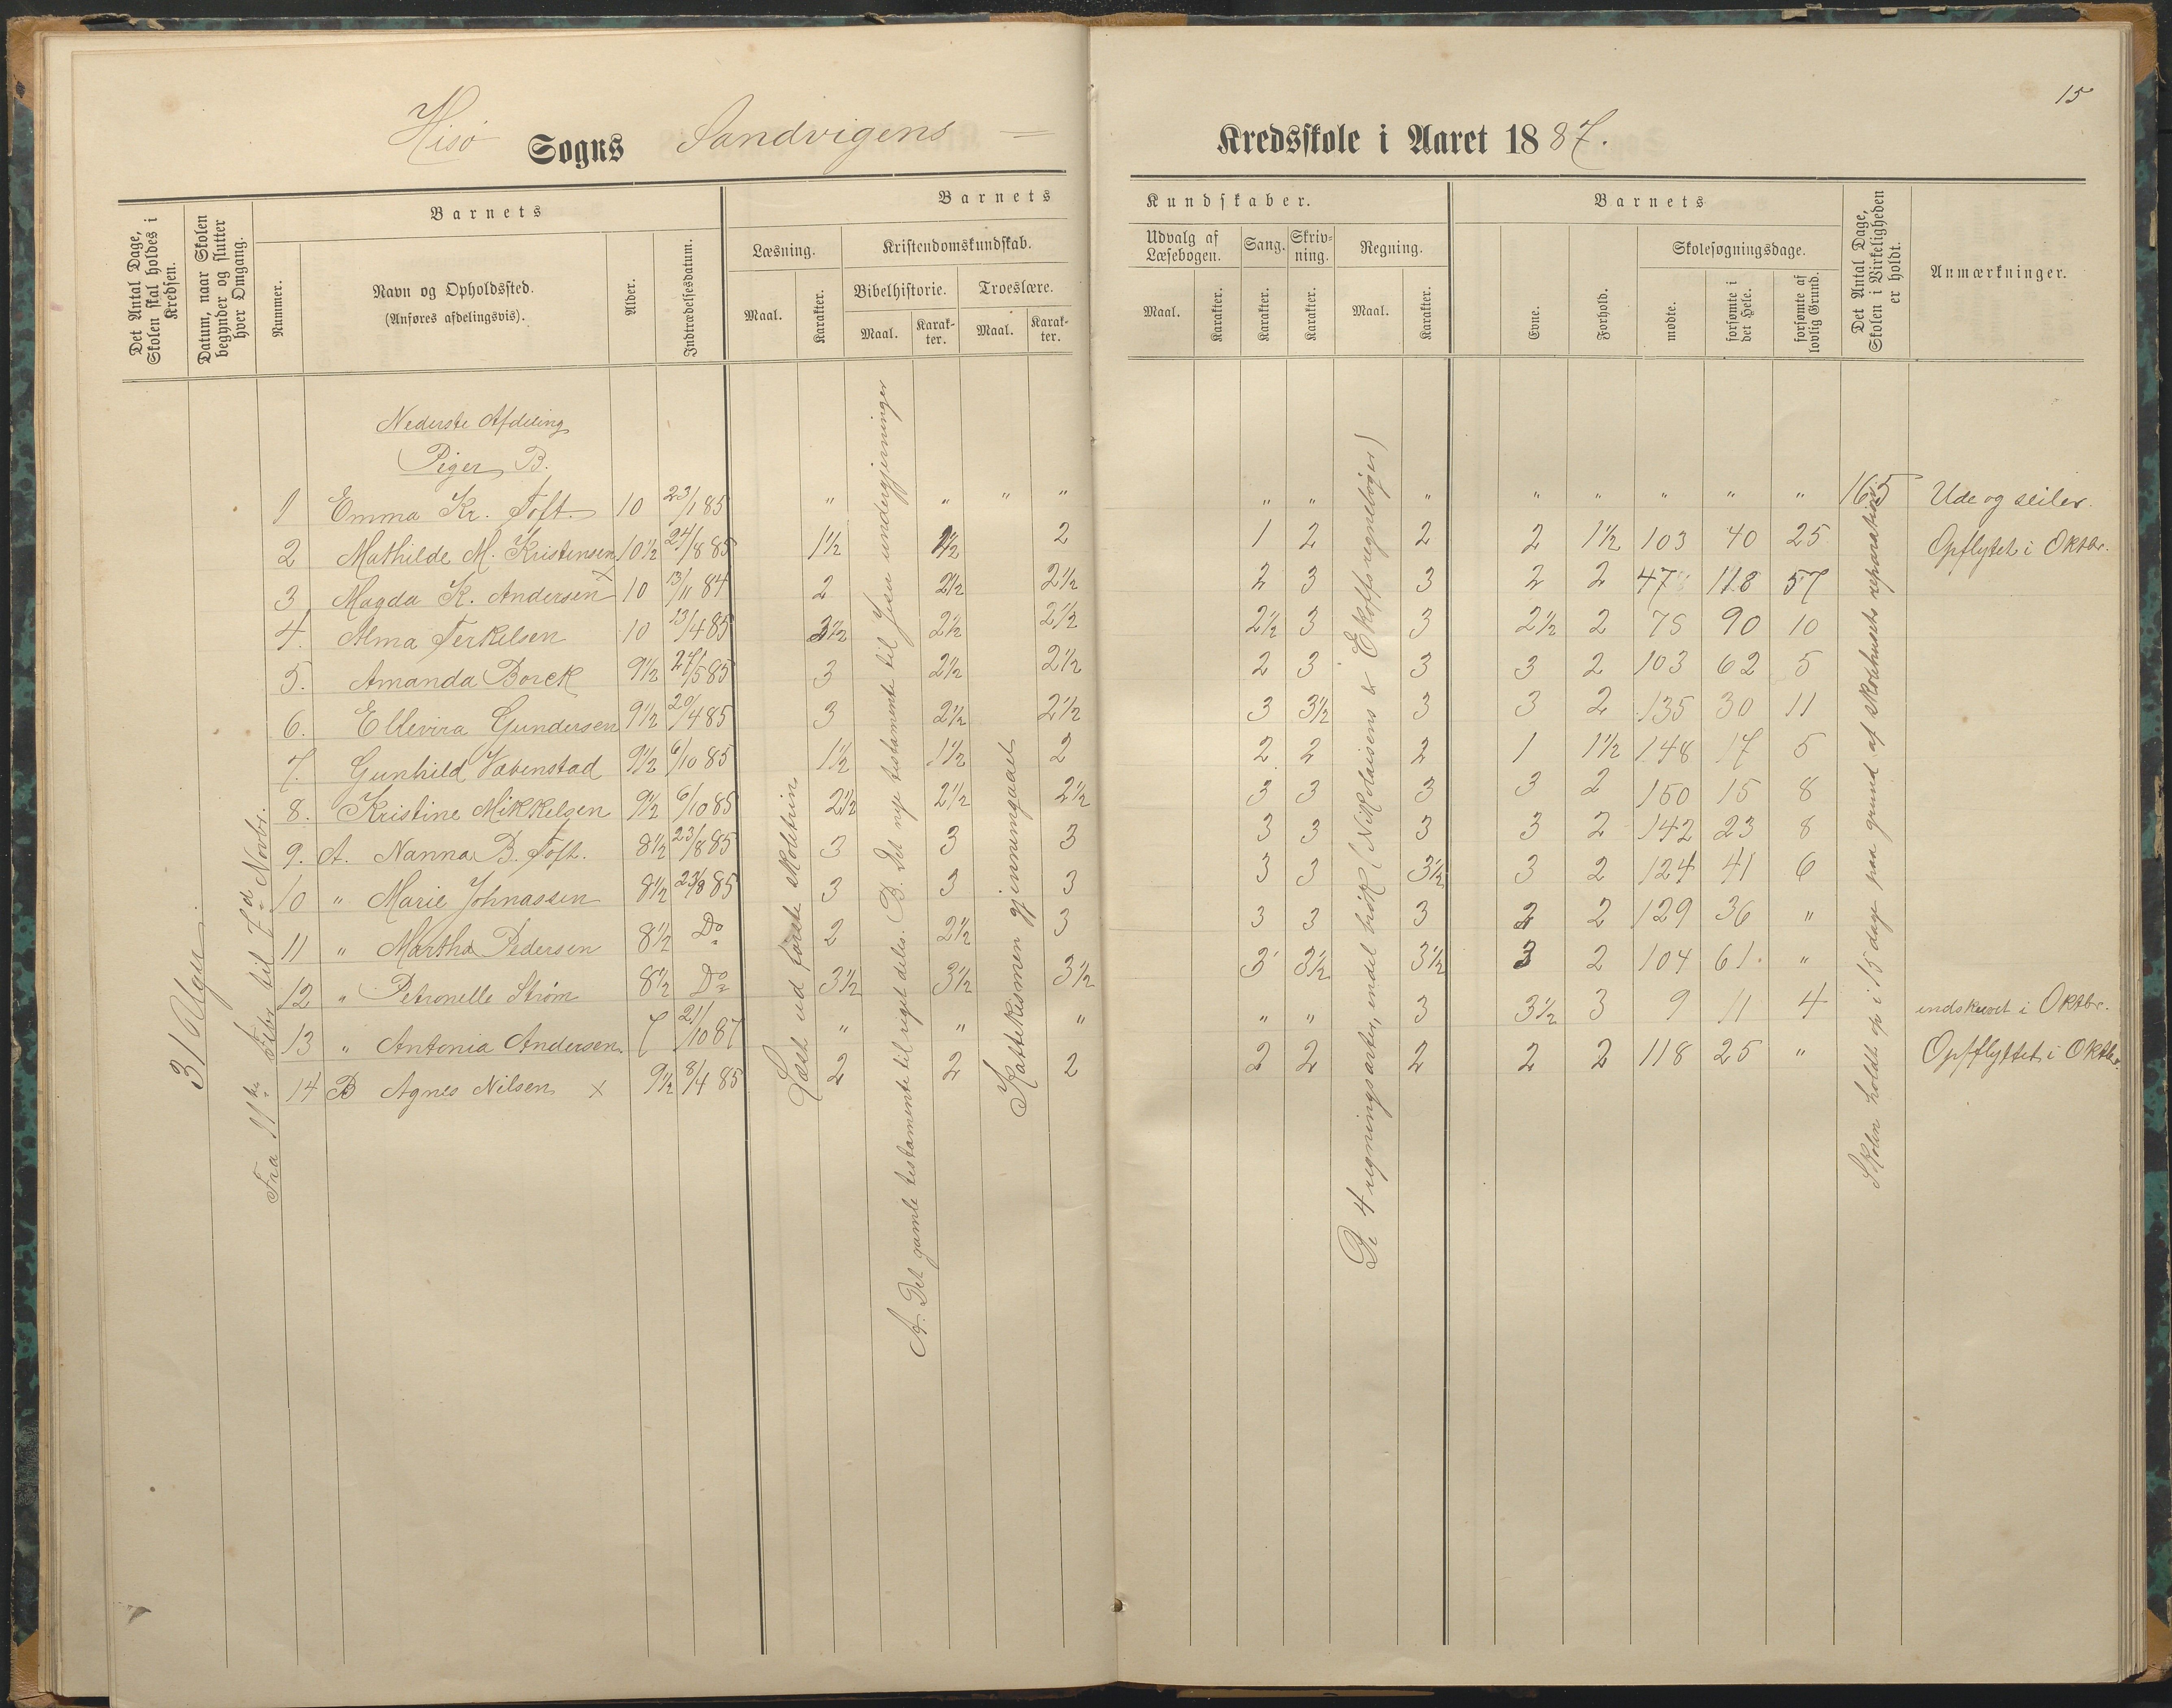 15
Hisö Sogns Sandvigens =
Kredsskole i Aaret 1887.
Det Antal Dage, Skolen skal holdes i Kredsen.
Datum, naar Skolen begynder og slutter hver Omgang.
Barnets
Nummer.
Navn og Opholdssted.
(Anføres afdelingsvis).
Alder.
Indtrædelsesdatum.
Barnets
Læsning.
Maal.
Karakter.
Kristendomskundskab.
Bibelhistorie.
Maal.
Karakter.
Troeslære.
Maal.
Karakter.
Kundskaber.
Udvalg af Læsebogen.
Maal.
Karakter.
Sang.
Karakter.
Skrivning.
Karakter.
Regning.
Maal.
Karakter.
Barnets
Evne.
Forhold.
Skolesøgningsdage.
mødte.
forsømte i det Hele.
forsømte af lovlig Grund.
Det Antal Dage, Skolen i Virkeligheden er holdt.
Anmærkninger.
31 Uger
Fra 11te til 7de Novbr.
Nederste Afdeling
Piger B.
1 Emma Kr. Toft. 10 23/1 85 " " " " " " " " " " " " 165 Ude og seiler.
2 Mathilde M. Kristensen 10½ 24/8 85 1½ 1½ 2 1 2 2 2 1½ 103 40 25 Opflytet i Oktbr.
3 Magda K. Andersen x 10 13/11 84 2 2½ 2½ 2 3 3 2 2 47 118 57
4. Alma Terkelsen 10 13/4 85 3½ 2½ 2½ 2½ 3 3 2½ 2 75 90 10
5. Amanda Borck 9½ 27/5 85 3 2½ 2½ 2 3 3 3 2 103 62 5
6. Ellevira Gundersen 9½ 20/4 85 3 2½ 2½ 3 3½ 3 3 2 135 30 11
7. Gunhild Vabenstad 9½ 6/10 85 1½ 1½ 2 2 2 2 1 1½ 148 17 5
8. Kristine Mikkelsen 9½ 6/10 85 2½ 2½ 2½ 3 3 3 3 2 150 15 8
9. A. Nanna B. Toft. 8½ 23/8 85 3 3 3 3 3 3 3 2 142 23 8
10 " Marie Johnassen 8½ 23/8 85 3 3 3 3 3 3½ 3 2 124 41 6
11 " Martha Pedersen 8½ Do 2 2½ 3 3 3 3 2 2 129 36 "
12 " Petronelle Strøm 8½ Do 3½ 3½ 3½ 3 3½ 3½ 3 2 104 61 "
13 " Antonia Andersen. 7 21/10 87 " " " " " 3 3½ 3 9 11 4 indskrevet i Oktbr.
14 B Agnes Nilsen x 9½ 8/4 85 2 2 2 2 2 2 2 2 118 25 " Opflyttet i Oktbr.
Læst ud første skoletrin
A. Det gamle testamente til riget deles. B. Det nye testamente til Jesu undergjerninger
Kattekismen gjennemgaaet
De 4 regningsarter, endel brøk (Nikolaisens & Ekoffs regnebøger)
Skolen holdt op i 15 dage paa grund af skolehusets reparation